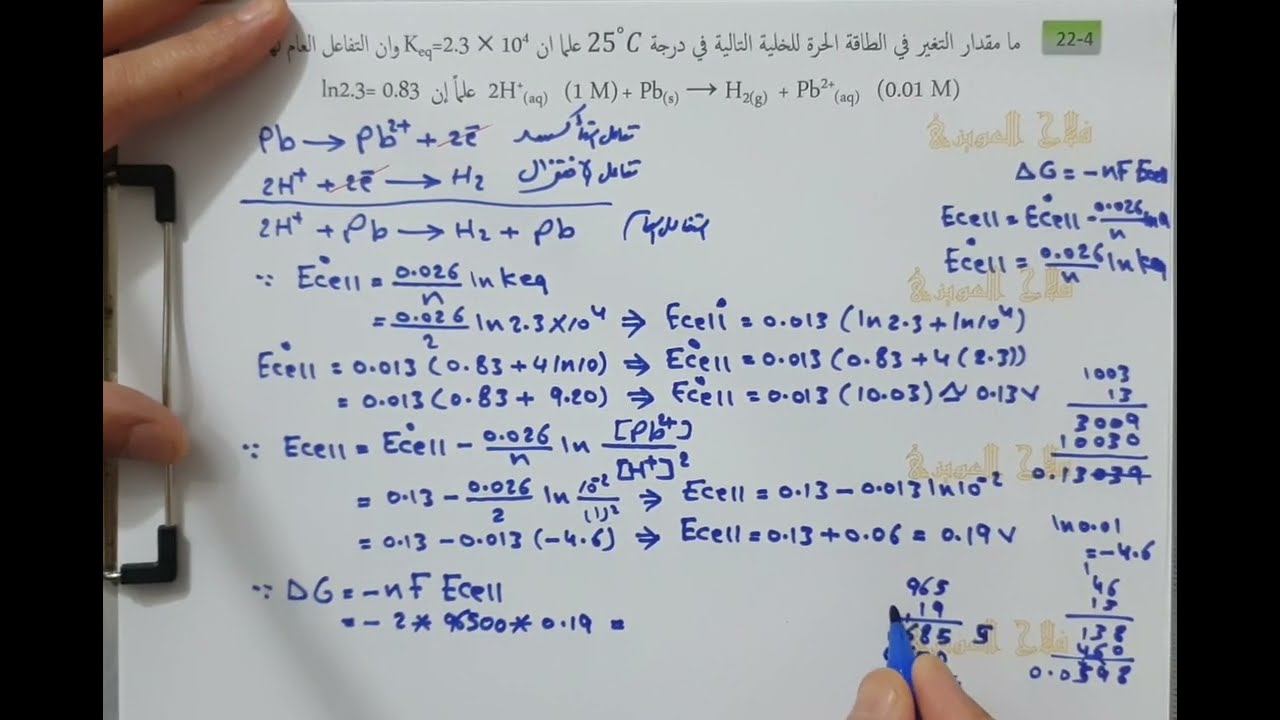 22-4 ما مقدار التغير في الطاقة الحرة للخلية التالية في درجة 25°C علما ان Keq=2.3 × 10⁴ وان التفاعل العام
2H⁺(aq) (1 M) + Pb(s) ⟶ H₂(g) + Pb²⁺(aq) (0.01 M) علماً إن ln2.3= 0.83
فلاح العويزي
Pb → Pb²⁺ + 2e⁻ تفاعل التأكسد
2H⁺ + 2e⁻ → H₂ تفاعل الاختزال
2H⁺ + Pb → H₂ + Pb التفاعل العام
ΔG = -nF Ecell
Ecell = E°cell - 0.026/n ln
E°cell = 0.026/n ln keq
فلاح العويزي
∵ E°cell = 0.026/n ln keq
= 0.026/2 ln 2.3×10⁴ ⇒ E°cell = 0.013 (ln 2.3 + ln10⁴)
E°cell = 0.013 (0.83 + 4 ln10) ⇒ E°cell = 0.013 (0.83 + 4 (2.3))
= 0.013 (0.83 + 9.20) ⇒ E°cell = 0.013 (10.03) ≃ 0.13 V
1003
13
3009
10030
0.13039
∵ Ecell = E°cell - 0.026/n ln [Pb²⁺]/[H⁺]²
فلاح العويزي
= 0.13 - 0.026/2 ln 10⁻²/(1)² ⇒ Ecell = 0.13 - 0.013 ln 10⁻²
= 0.13 - 0.013 (-4.6) ⇒ Ecell = 0.13 + 0.06 = 0.19 V
ln 0.01
= -4.6
1
46
13
138
460
0.0598
∵ ΔG = -nF Ecell
= - 2 * 96500 * 0.19 =
965
19
685 5
فلاح العويزي